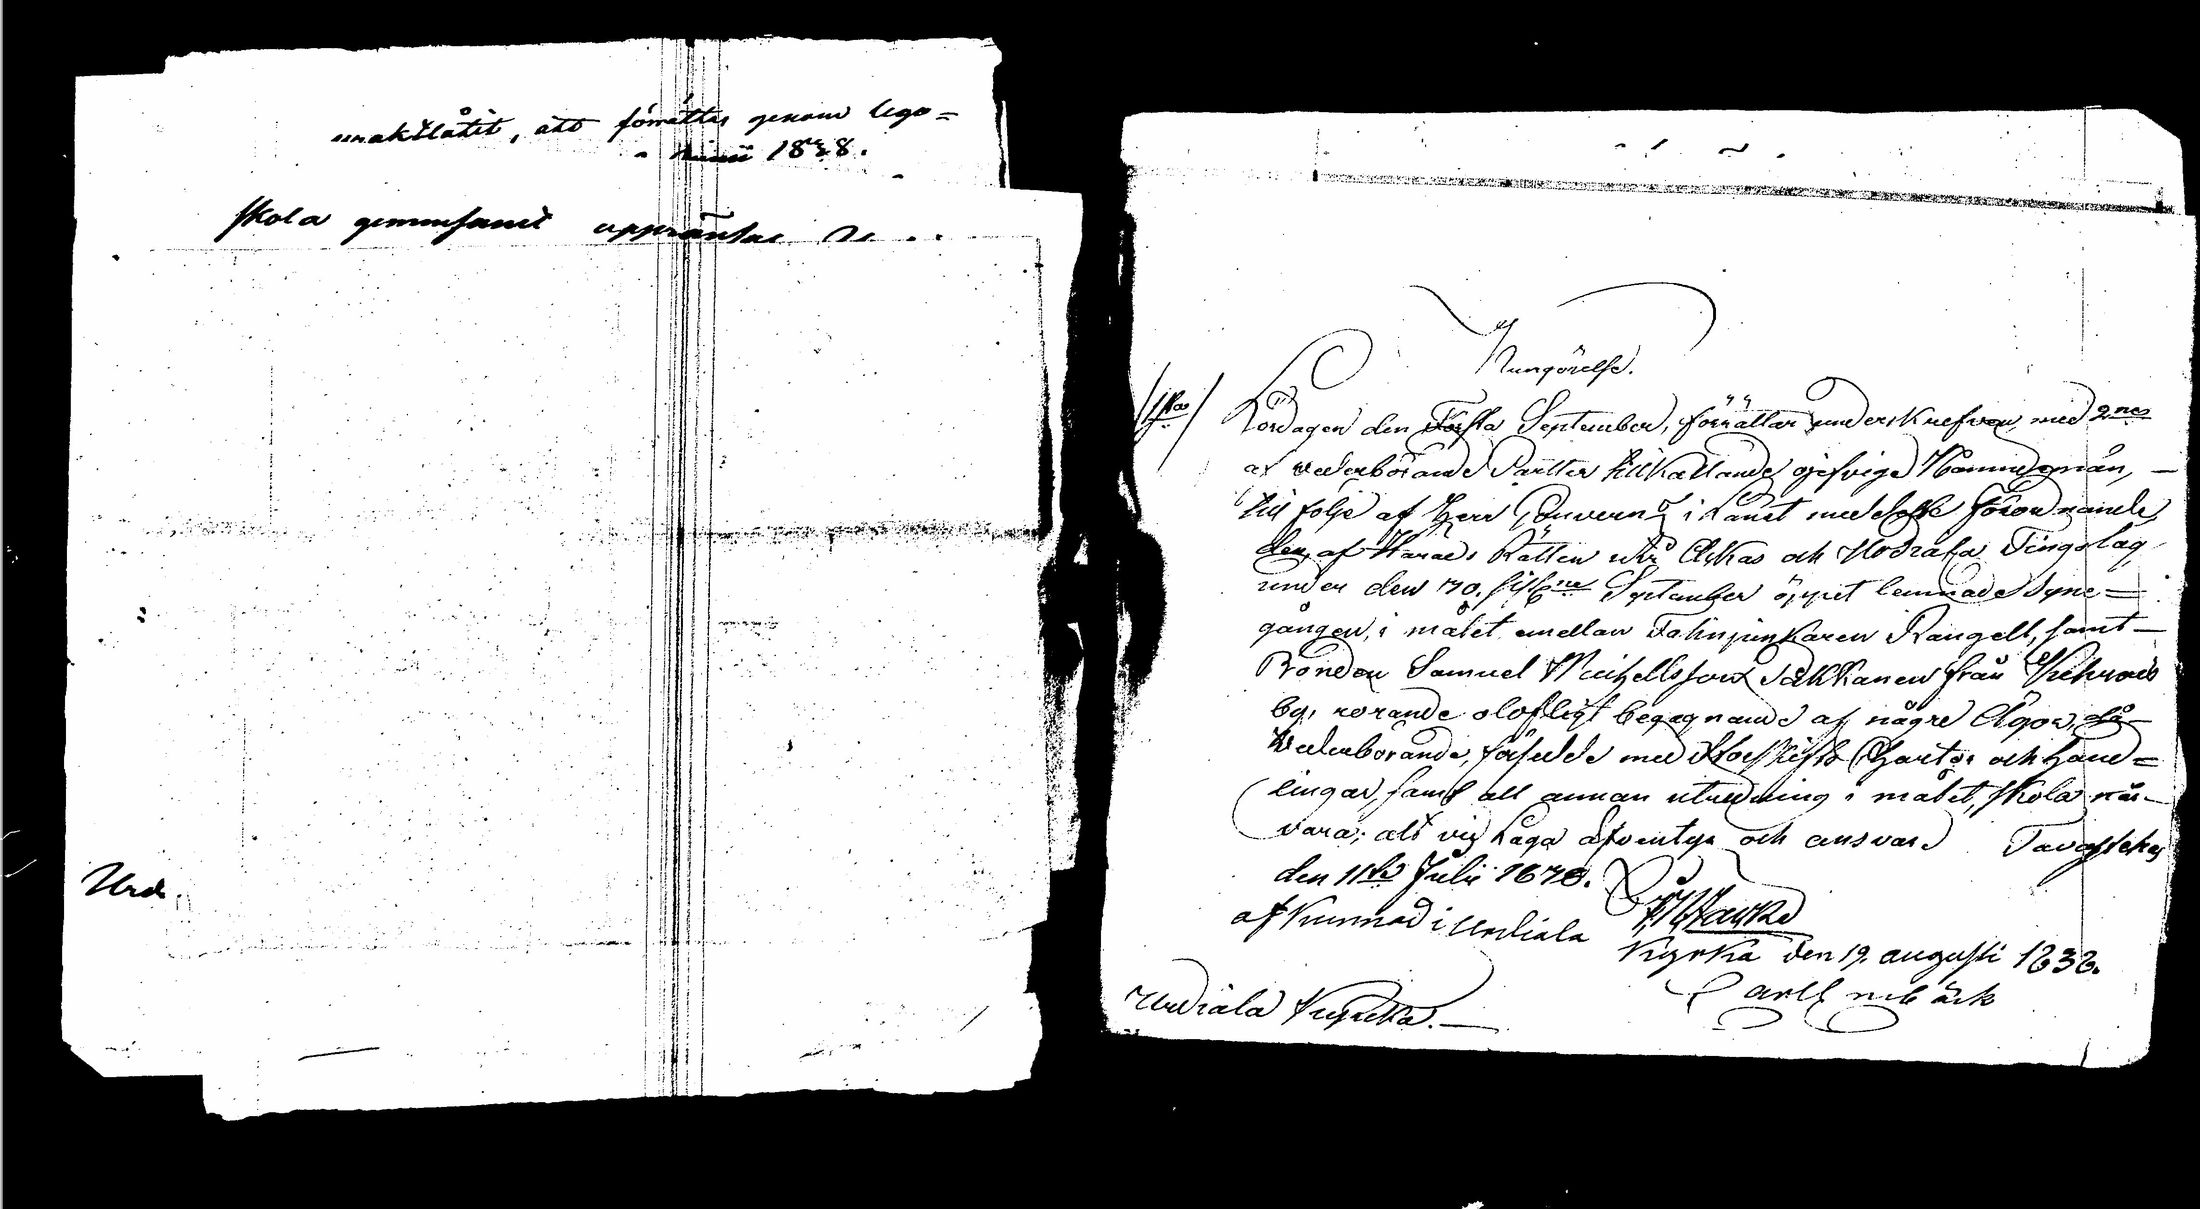 uraktlåtit, att förrättas genom lego=
1838.
skola gemensamt
Urd.
Kungörelse.
Lördagen den Första September, förrättar underskrefven, med 2ne
af vederbörande Partter tillkallande ojäfvige Nämndemän,
till följe af Herr Gouverns i Länet meddelte förordnande,
den af Härads Rätten utur Akkas och Tingslag,
under den September öppet lemnade syne=
gången, i målet emellan Fahnjunkaren Rangell, samt
Bonden Samuel Michellsson Jakkanen från
by, rörande olofligt begagnande af någre Ägor, då
Vederbörande, försedde med Storskifts Chartor och Hand=
lingar, samt all annan utredning i målet, skola när=
vara; alt vid laga äfventyr och answar. Tavastehus
den 11te Julii 1838.
afkunnad i Urdiala
Kyrka den 19 augusti 1838.
Carl
Urdiala Kyrka.